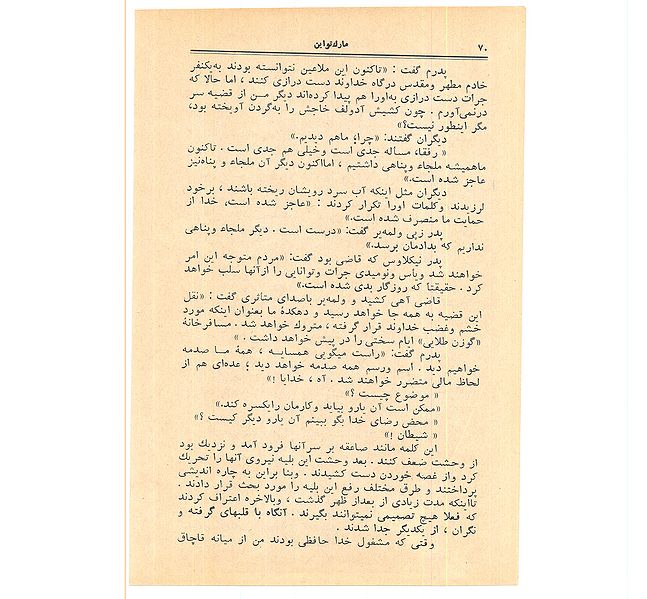 ۷۰
مارك‌تواین
پدرم گفت : «تاکنون این ملاعین نتوانسته بودند به‌یکنفر
خادم مطهر ومقدس درگاه خداوند دست درازی کنند ، اما حالا که
جرات دست درازی به‌اورا هم پیدا کرده‌اند دیگر مـن از قضیه سر
درنمی‌آورم . چون کشیش آدولف خاجش را به‌گردن آویخته بود،
مگر اینطور نیست؟»
دیگران گفتند: «چرا، ماهم دیدیم.»
« رفقا، مسأله جدی است وخیلی هم جدی است . تاکنون
ماهمیشه ملجاء وپناهی داشتیم ، امااکنون دیگر آن ملجاء و پناه‌نیز
عاجز شده است.»
دیگران مثل اینکه آب سرد رویشان ریخته باشند ، برخود
لرزیدند وکلمات اورا تکرار کردند : «عاجز شده است، خدا از
حمایت ما منصرف شده است.»
پدر زپی ولمه‌یر گفت: «درست است . دیگر ملجاء وپناهی
نداریم که بدادمان برسد.»
پدر نیکلاوس که قاضی بود گفت: «مردم متوجه این امر
خواهند شد ویأس ونومیدی جرات وتوانایی را ازآنها سلب خواهد
کرد . حقیقتاً که روزگار بدی شده است.»
قاضی آهی کشید و ولمه‌یر باصدای متاثری گفت : «نقل
این قضیه به همه جا خواهد رسید و دهکدهٔ ما بعنوان اینکه مورد
خشم وغضب خداوند قرار گرفته ، متروك خواهد شد . مسافرخانهٔ
«گوزن طلایی» ایام سختی را در پیش خواهد داشت . »
پدرم گفت: «راست میگویی همسایـه ، همهٔ مـا صدمه
خواهیم دید . اسم ورسم همه صدمه خواهد دید ؛ عده‌ای هم از
لحاظ مالی متضرر خواهند شد . آه ، خدایا !»
« موضوع چیست ؟»
«ممکن است آن یارو بیاید وکارمان رایکسره کند.»
« محض رضای خدا بگو ببینم آن یارو دیگر کیست ؟»
« شیطان !»
این کلمه مانند صاعقه بر سرآنها فرود آمد و نزدیك بود
از وحشت ضعف کنند . بعد وحشت این بلیه نیروی آنها را تحریك
کرد واز غصه خوردن دست کشیدند . وبنا براین به چاره اندیشی
پرداختند و طرق مختلف رفع این بلیه را مورد بحث قرار دادند .
تااینکه مدت زیادی از بعداز ظهر گذشت ، وبالاخره اعتراف کردند
که فعلا هیچ تصمیمی نمیتوانند بگیرند . آنگاه با قلبهای گرفته و
نگران ، از یکدیگر جدا شدند .
وقتی که مشغول خدا حافظی بودند من از میانه قاچاق